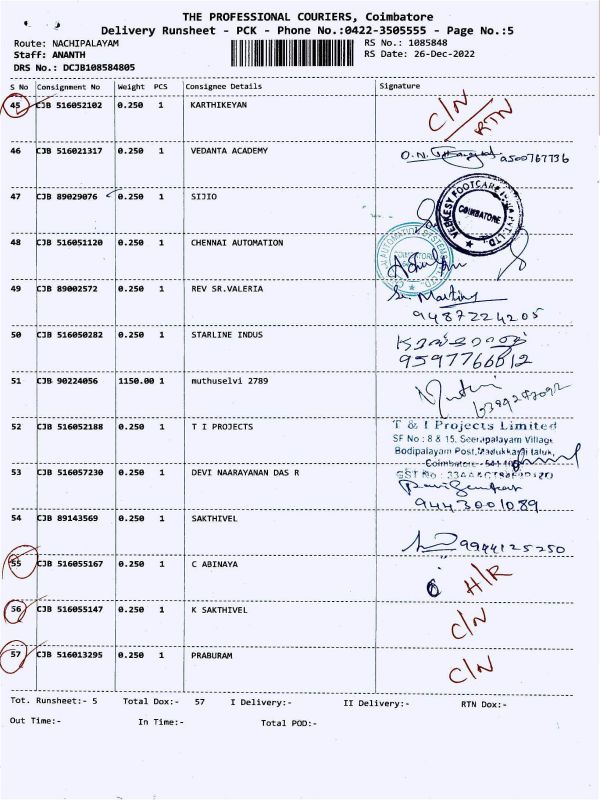 THE PROFESSIONAL COURIERS, Coimbatore
Delivery Runsheet - PCK - Phone No.:0422-3505555 - Page No.:5
Route: NACHIPALAYAM RS No.: 1085848
Staff: ANANTH RS Date: 26-Dec-2022
DRS No.: DCJB108584805
S No Consignment No Weight PCS Consignee Details Signature
45 CJB 516052102 0.250 1 KARTHIKEYAN C/N
RTN
46 CJB 516021317 0.250 1 VEDANTA ACADEMY
47 CJB 89029076 0.250 1 SIJIO
VEEKESY FOOTCARE
COIMBATORE
48 CJB 516051120 0.250 1 CHENNAI AUTOMATION
49 CJB 89002572 0.250 1 REV SR.VALERIA
9487224205
50 CJB 516050282 0.250 1 STARLINE INDUS
9597766812
51 CJB 90224056 1150.00 1 muthuselvi 2789
52 CJB 516052188 0.250 1 T I PROJECTS
T & I Projects Limited
SF No : 8 & 15, Seerapalayam Village
Bodipalayom Post, Madukkarai taluk,
Coimbatore
53 CJB 516057230 0.250 1 DEVI NAARAYANAN DAS R
GST No :
9443001089
54 CJB 89143569 0.250 1 SAKTHIVEL
9944125250
55 CJB 516055167 0.250 1 C ABINAYA H/R
56 CJB 516055147 0.250 1 K SAKTHIVEL C/N
57 CJB 516013295 0.250 1 PRABURAM C/N
Tot. Runsheet:- 5 Total Dox:- 57 I Delivery:- II Delivery:- RTN Dox:-
Out Time:- In Time:- Total POD:-